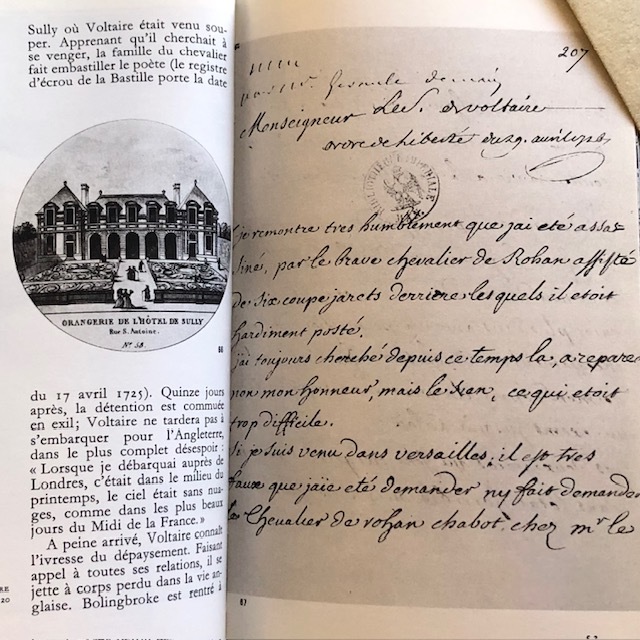 Sully où Voltaire était venu sou-
per. Apprenant qu'il cherchait à
se venger, la famille du chevalier
fait embastiller le poète (le registre
d'écrou de la Bastille porte la date
ORANGERIE DE L'HÔTEL DE SULLY
Rue S. Antoine.
N.º 58.
86
du 17 avril 1725). Quinze jours
après, la détention est commuée
en exil; Voltaire ne tardera pas à
s'embarquer pour l'Angleterre,
dans le plus complet désespoir :
« Lorsque je débarquai auprès de
Londres, c'était dans le milieu du
printemps, le ciel était sans nua-
ges, comme dans les plus beaux
jours du Midi de la France.»
A peine arrivé, Voltaire connaît
l'ivresse du dépaysement. Faisant
appel à toutes ses relations, il se
jette à corps perdu dans la vie an-
glaise. Bolingbroke est rentré à
RE
20
207
Monseigneur Le S. de voltaire
ordre de liberté du 29. avril 1726
je remontre tres humblement que jai eté assa
siné, par le brave chevalier de Rohan assisté
de six coupe jarets derriere lesquels il etoit
hardiment posté.
jai toujours cherché depuis ce temps la, a repare
non mon honneur, mais le sien, ce qui etoit
trop difficile.
si je suis venu dans versailles, il est tres
faux que jaie eté demander ny fait demander
le Chevalier de rohan chabot chez mr le
87